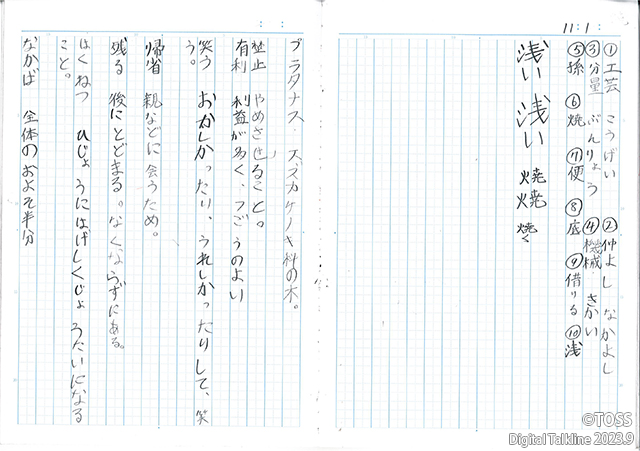 11:1:
①工芸 こうげい ②仲よし なかよし
③分量 ぶんりょう ④機械 きかい
⑤孫 ⑥焼 ⑦便 ⑧底 ⑨借りる ⑩浅
浅い 浅い 焼焼焼く
プラタナス スズカケノキ科の木。
禁止 やめさせること。
有利 利益が多く、つごうのよい
笑う おかしかったり、うれしかったりして、笑
う。
帰省 親などに会うため。
残る 後にとどまる。なくならずにある。
はくねつ ひじょうにはげしくじょうたいになる
こと。
なかば 全体のおよそ半分
©TOSS
Digital Talkline 2023.9